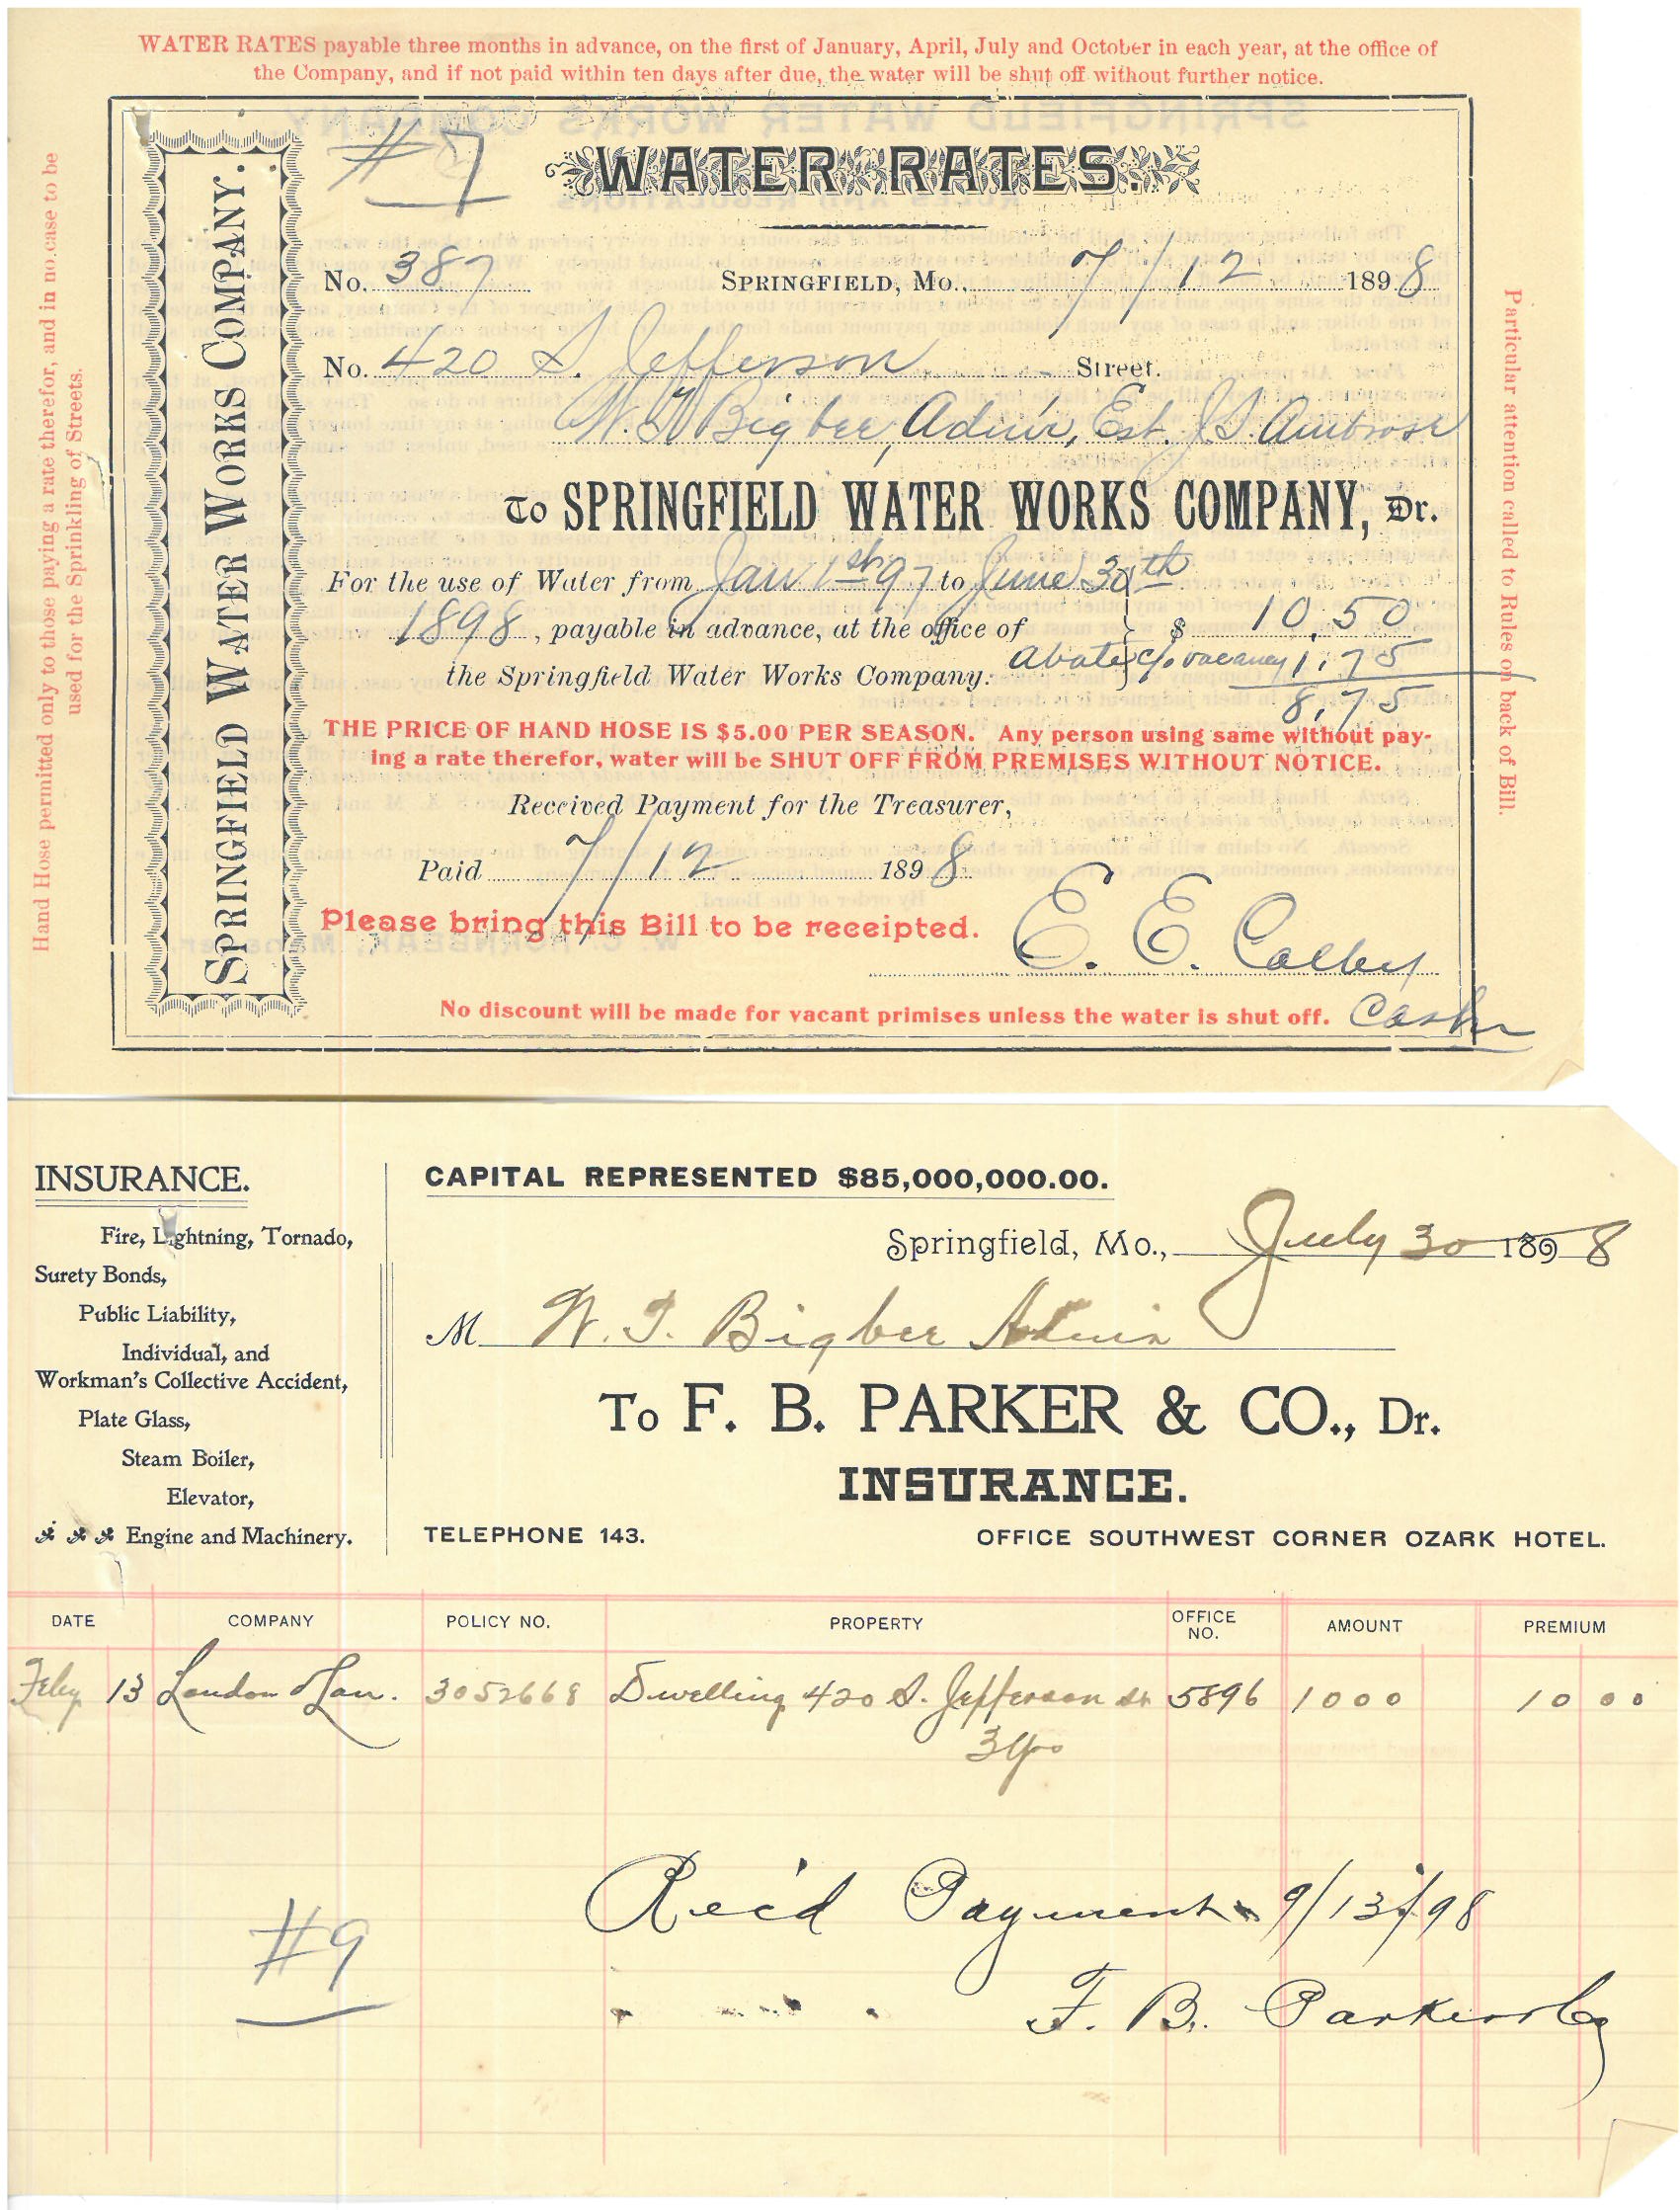 WATER RATES payable three months in advance, on the first of January, April, July and October in each year, at the office of
the Company, and if not paid within ten days after due, the water will be shut off without further notice.
Hand Hose permitted only to those paying a rate therefor, and in no case to be
used for the Sprinkling of Streets.
SPRINGFIELD WATER WORKS COMPANY.
#7
WATER RATES.
No. 387 SPRINGFIELD, MO., 7/12 1898
No. 420 S. Jefferson Street.
W. T. Bigbee, Admr, Est. J. S. Ambrose
To SPRINGFIELD WATER WORKS COMPANY, Dr.
For the use of Water from Jan 1st 97 to June 30th
1898, payable in advance, at the office of } $ 10.50
the Springfield Water Works Company. abate c/o vacancy 1.75
8.75
THE PRICE OF HAND HOSE IS $5.00 PER SEASON. Any person using same without pay-
ing a rate therefor, water will be SHUT OFF FROM PREMISES WITHOUT NOTICE.
Received Payment for the Treasurer,
Paid 7/12 1898
Please bring this Bill to be receipted.
E. E. Colby
No discount will be made for vacant primises unless the water is shut off. Cashr
Particular attention called to Rules on back of Bill.
INSURANCE.
Fire, Lightning, Tornado,
Surety Bonds,
Public Liability,
Individual, and
Workman's Collective Accident,
Plate Glass,
Steam Boiler,
Elevator,
Engine and Machinery.
CAPITAL REPRESENTED $85,000,000.00.
Springfield, Mo., July 30 1898
M W. T. Bigbee Admin
To F. B. PARKER & CO., Dr.
INSURANCE.
TELEPHONE 143. OFFICE SOUTHWEST CORNER OZARK HOTEL.
DATE COMPANY POLICY NO. PROPERTY OFFICE NO. AMOUNT PREMIUM
Feby 13 London & Lan. 3052668 Dwelling 420 S. Jefferson St 5896 1000 10 00
3 yrs
Rec'd Payment 9/13/98
#9
F. B. Parker & Co